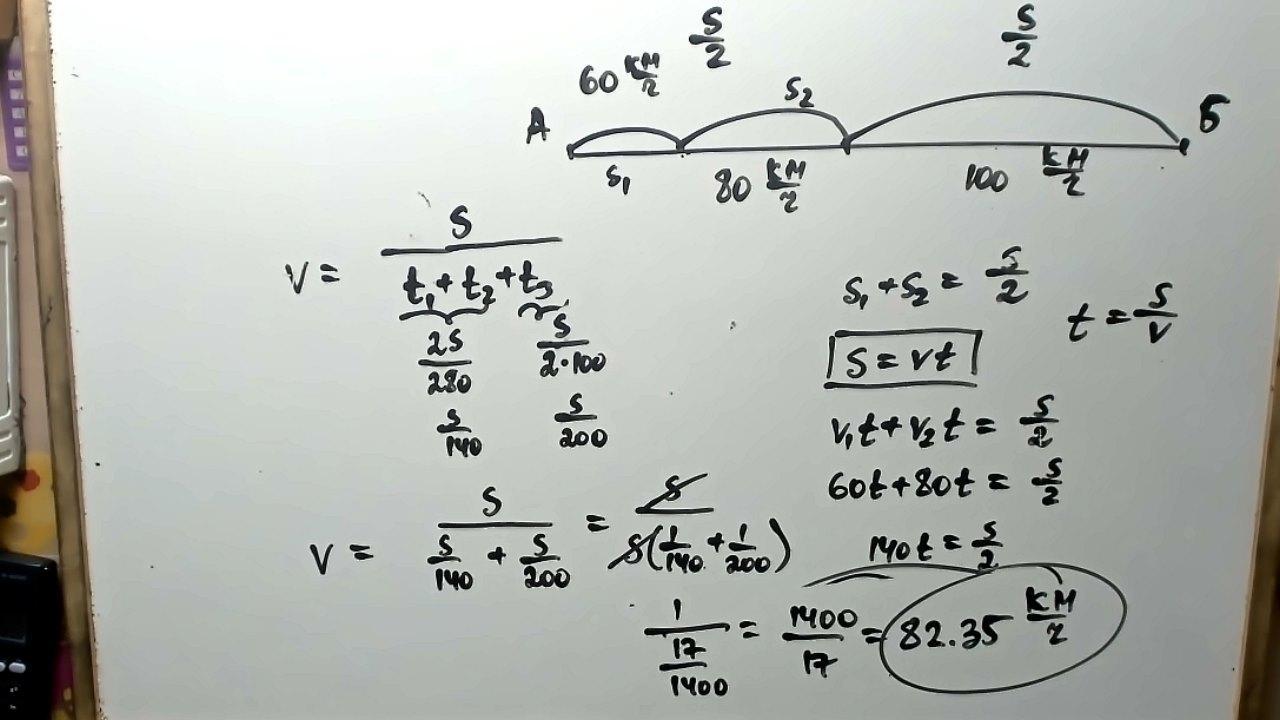 s/2 s/2
60 км/г s₂
A Б
s₁ 80 км/г 100 км/г
v = s/(t₁ + t₂ + t₃)
2s/280 s/(2·100)
s/140 s/200
s₁ + s₂ = s/2
t = s/v
s = vt
v₁t + v₂t = s/2
60t + 80t = s/2
140t = s/2
v = s/(s/140 + s/200) = s/(s(1/140 + 1/200))
1/(17/1400) = 1400/17 = 82.35 км/г